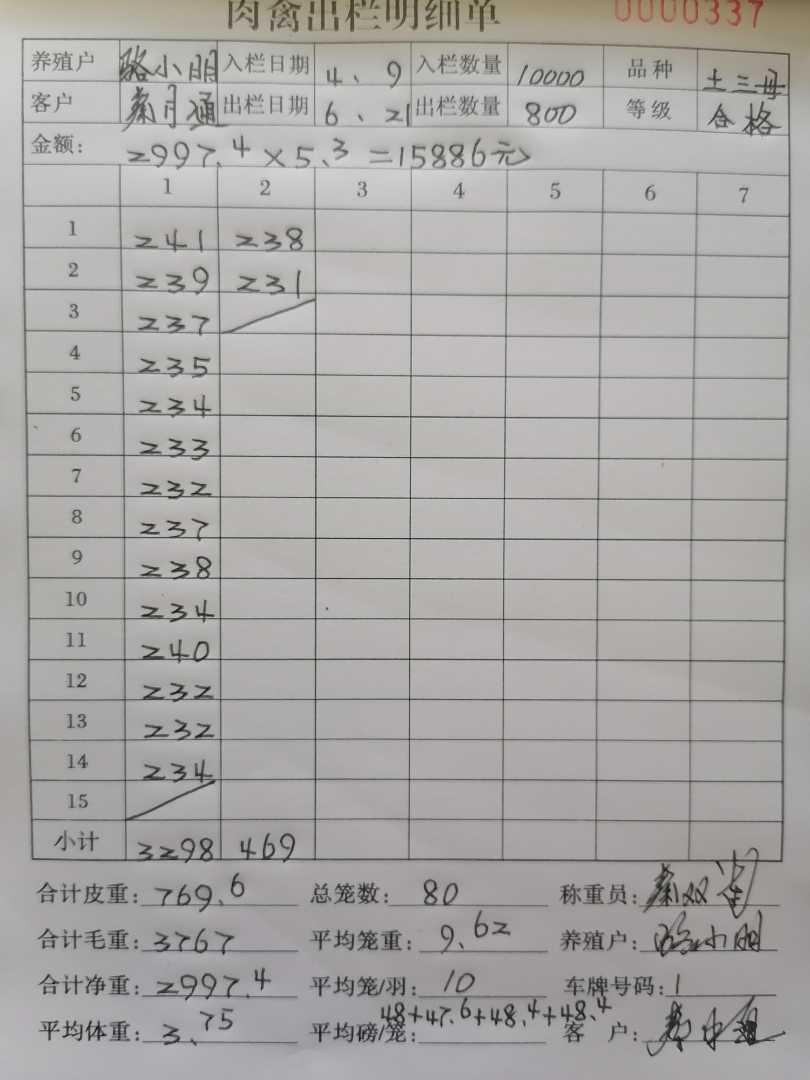 肉禽出栏明细单 0000337
养殖户 骆小朋 入栏日期 4、9 入栏数量 10000 品种 土三母
客户 秦月通 出栏日期 6、21 出栏数量 800 等级 合格
金额: 2997.4×5.3=15886元
1 2 3 4 5 6 7
1 241 238
2 239 231
3 237
4 235
5 234
6 233
7 232
8 237
9 238
10 234
11 240
12 232
13 232
14 234
15
小计 3298 469
合计皮重: 769.6 总笼数: 80 称重员:
合计毛重: 3767 平均笼重: 9.62 养殖户: 骆小朋
合计净重: 2997.4 平均笼/羽: 10 车牌号码: 1
平均体重: 3.75 平均磅/笼: 48+47.6+48.4+48.4 客户: